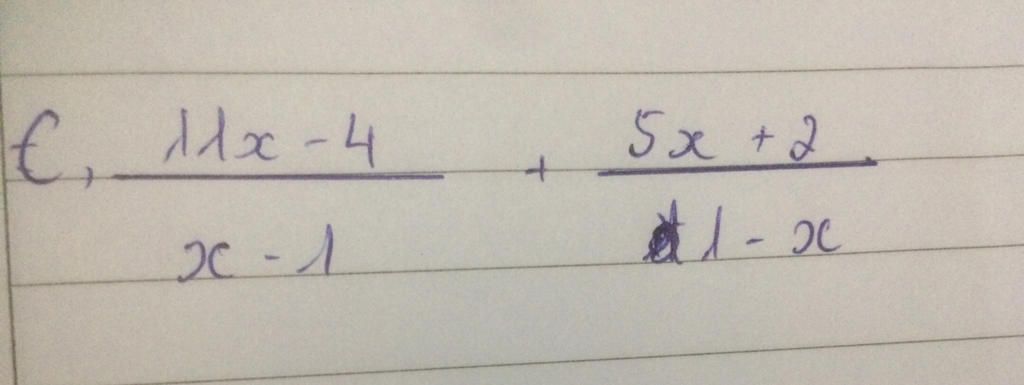 €, \frac{11x - 4}{x - 1} + \frac{5x + 2}{1 - x}